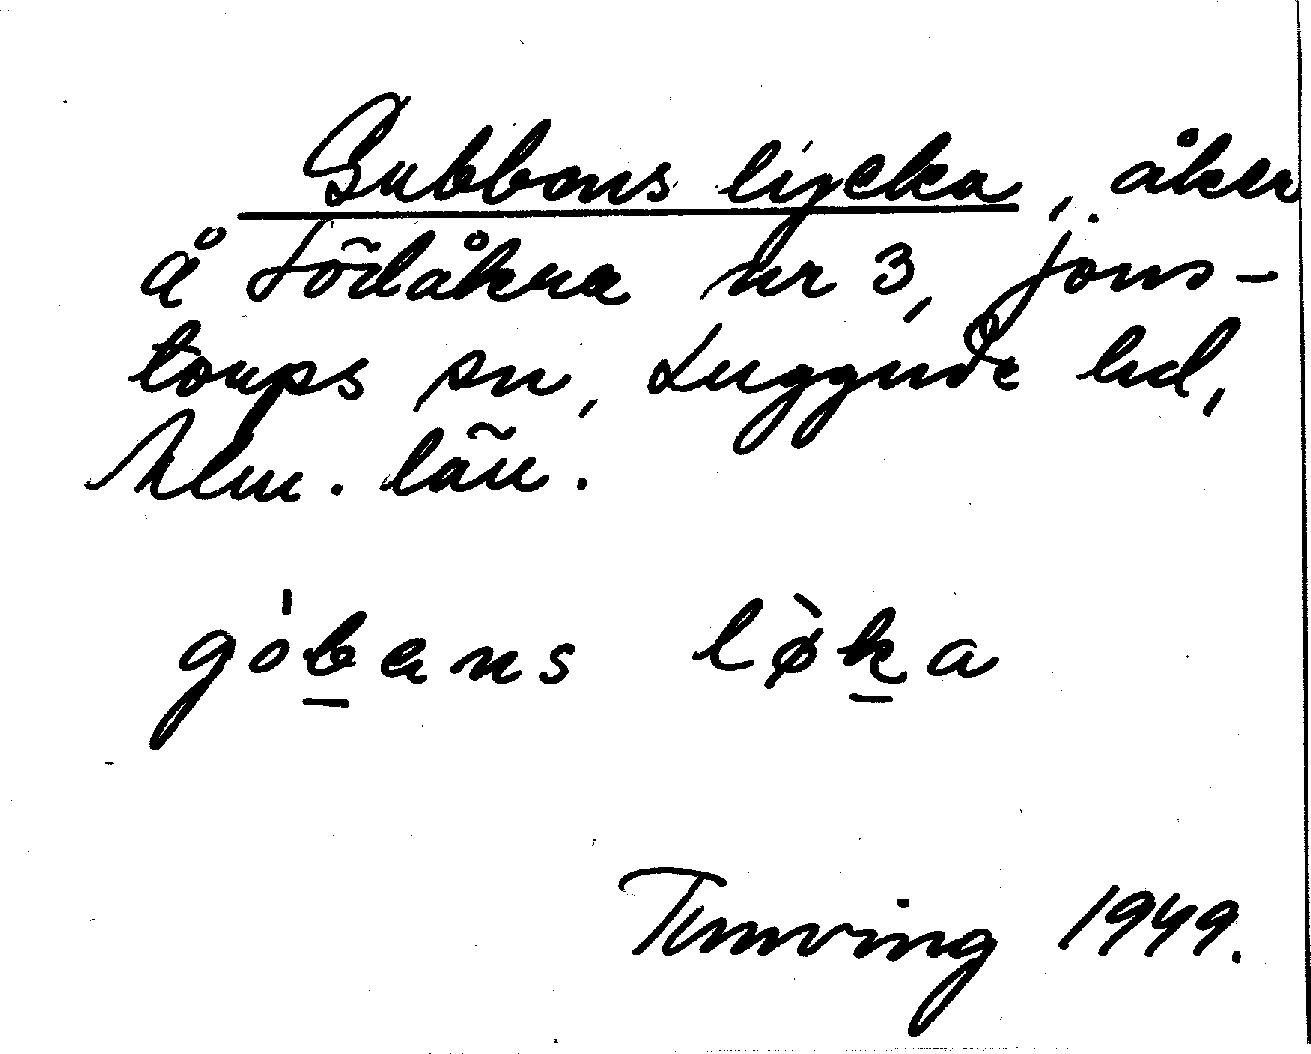 Gubbens lycka, åker
å Södåkra nr 3, Jons-
torps sn, Luggude hd,
Mlm. län.
góbans lø̀ka
Tunving 1949.